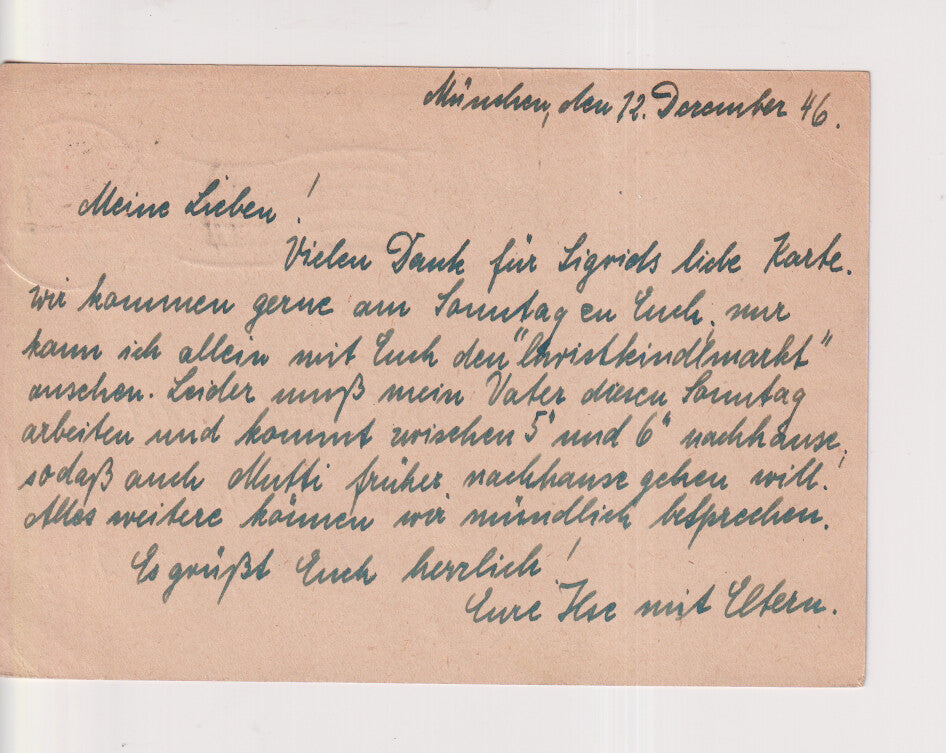 München, den 12. Dezember 46.
Meine Lieben!
Vielen Dank für Sigrids liebe Karte.
Wir kommen gerne am Sonntag zu Euch, nur
kann ich allein mit Euch den "Christkindlmarkt"
ansehen. Leider muß mein Vater diesen Sonntag
arbeiten und kommt zwischen 5h und 6h nachhause,
sodaß auch Mutti früher nachhause gehen will.
Alles weitere können wir mündlich besprechen.
Es grüßt Euch herzlich!
Eure Ilse mit Eltern.